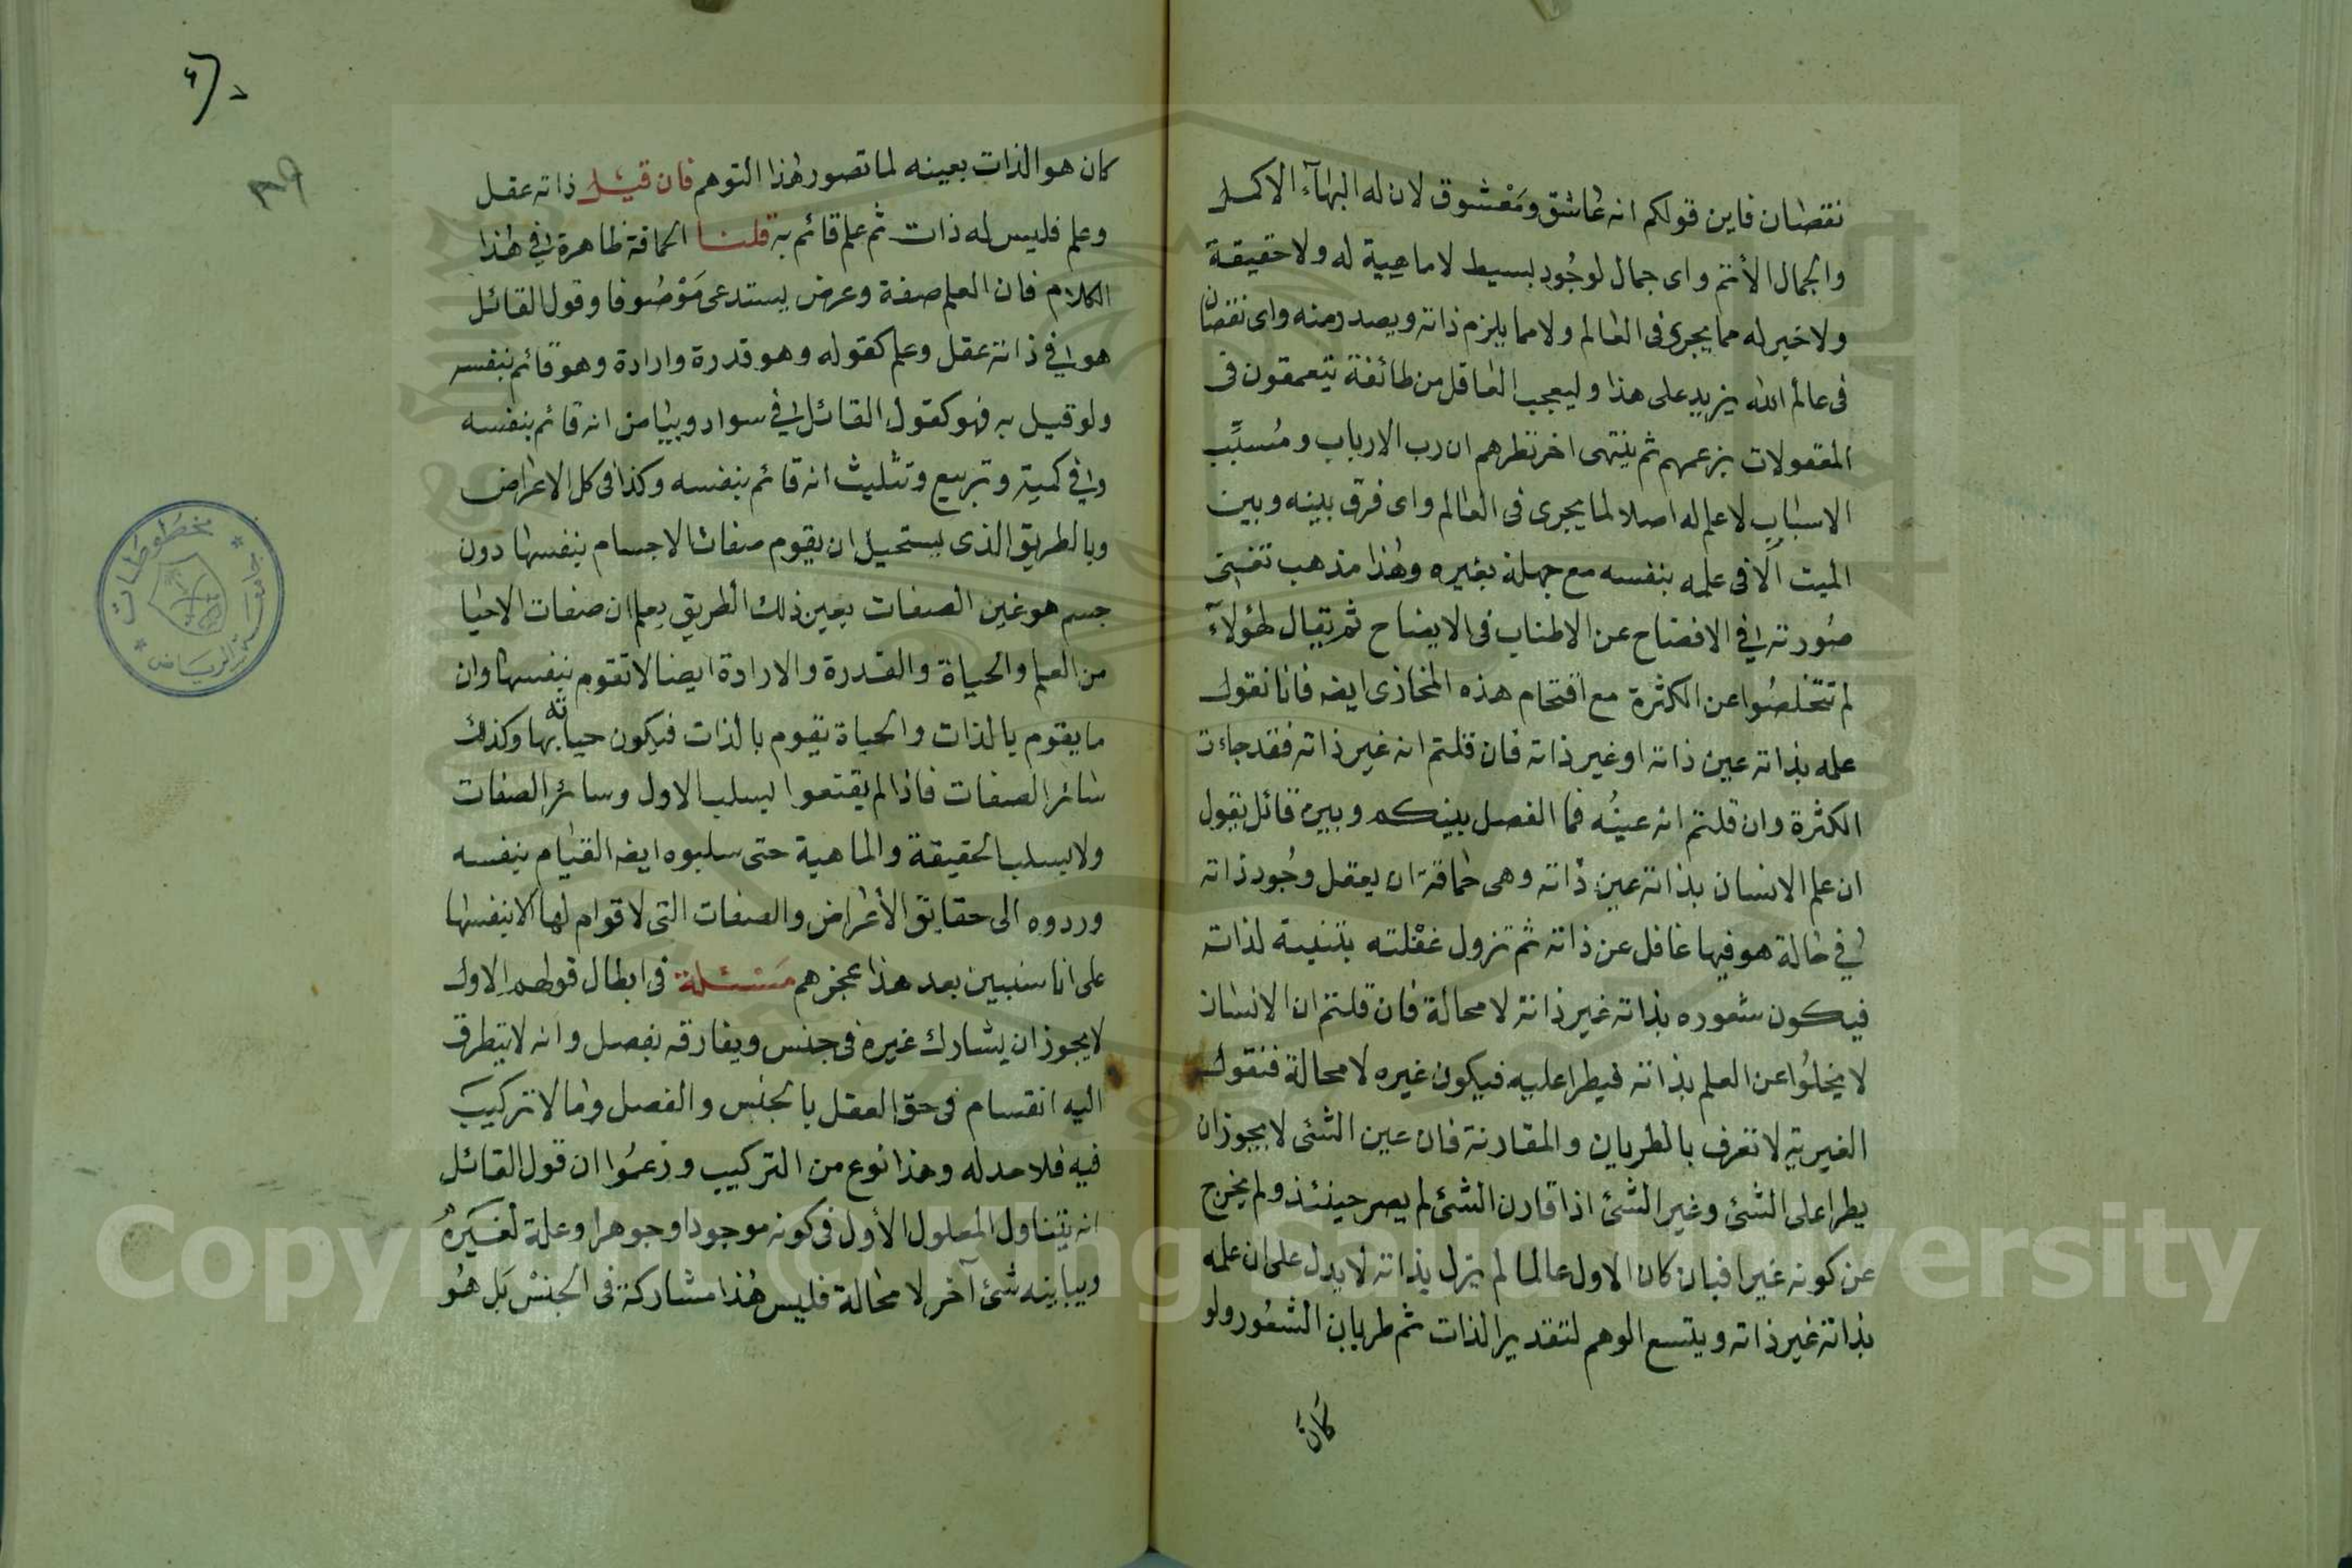 نقصان فاين قولكم انه عاشق ومعشوق لان له البهآء الاكمل
والجمال الأتم واى جمال لوجود بسيط لا ماهية له ولا حقيقة
ولا خبر له مما يجرى فى العالم ولا مما يلزم ذاته ويصدر منه واى نقصان
فى عالم الله يزيد على هذا وليعجب العاقل من طائفة يتعمقون فى
المعقولات بزعمهم ثم ينتهى اخر نظرهم ان رب الارباب ومسبّب
الاسباب لا علم له اصلا لما يجرى فى العالم واى فرق بينه وبين
الميت الّا فى علمه بنفسه مع جهله بغيره وهذا مذهب تغنى
صورته فى الافضاح عن الاطناب فى الايضاح ثم يقال لهؤلآء
لم تتخلصوا عن الكثرة مع اقتحام هذه المخازى ايضه فانا نقول
علمه بذاته عين ذاته او غير ذاته فان قلتم انه غير ذاته فقد جاءت
الكثرة وان قلتم انه عينه فما الفصل بينكم وبين قائل يقول
ان علم الانسان بذاته عين ذاته وهى حماقة ان يعقل وجود ذاته
فى حالة هو فيها غافل عن ذاته ثم تزول غفلته بتنبيه لذاته
فيكون شعوره بذاته غير ذاته لا محالة فان قلتم ان الانسان
لا يخلوا عن العلم بذاته فيطرا عليه فيكون غيره لا محالة فنقول
الغيرية لا تعرف بالطريان والمقارنة فان عين الشئ لا يجوز ان
يطرا على الشئ وغير الشئ اذا قارن الشئ لم يصر حينئذ ولم يخرج
عن كونه غيرا فبان كان الاول عالما لم يزل بذاته لا يدل على ان علمه
بذاته غير ذاته ويتسع الوهم لتقدير الذات ثم طريان الشعور ولو
كان
كان هو الذات بعينه لما تصور هذا التوهم فان قيل ذاته عقل
وعلم فليس له ذات ثم علم قائم به قلنا الحماقة ظاهرة فى هذا
الكلام فان العلم صفة وعرض يستدعى موصوفا وقول القائل
هو فى ذاته عقل وعلم كقوله وهو قدرة وارادة وهو قائم بنفسه
ولو قيل به فهو كقول القائل فى سواد وبياض انه قائم بنفسه
وفى كمية وتربيع وتثليث انه قائم بنفسه وكذا فى كل الاعراض
وبالطريق الذى يستحيل ان يقوم صفات الاجسام بنفسها دون
جسم هو غير الصفات بعين ذلك الطريق يعلم ان صفات الاحيا
من العلم والحياة والقدرة والارادة ايضا لا تقوم بنفسها وان
ما يقوم بالذات والحياة تقوم بالذات فيكون حياته بها وكذلك
سائر الصفات فاذا لم يقتعوا ليسلب الاول وسائر الصفات
ولا يسلب الحقيقة والماهية حتى سلبوه ايضه القيام بنفسه
وردوه الى حقائق الأعراض والصفات التى لا قوام لها الا بنفسها
على انا سنبين بعد هذا عجزهم مسئلة فى ابطال قولهم الاول
لا يجوز ان يشارك غيره فى جنس ويفارقه بفصل وانه لا يتطرق
اليه انقسام فى حق العقل بالجنس والفصل وما لا تركيب
فيه فلا حد له وهذا نوع من التركيب وزعموا ان قول القائل
انه يتناول المعلول الأول فى كونه موجودا وجوهرا وعلة لغيره
ويباينه شئ آخر لا محالة فليس هذا مشاركة فى الجنس بل هو
٣٩
مخطوطات
جامعة الرياض
Copyright © King Saud University